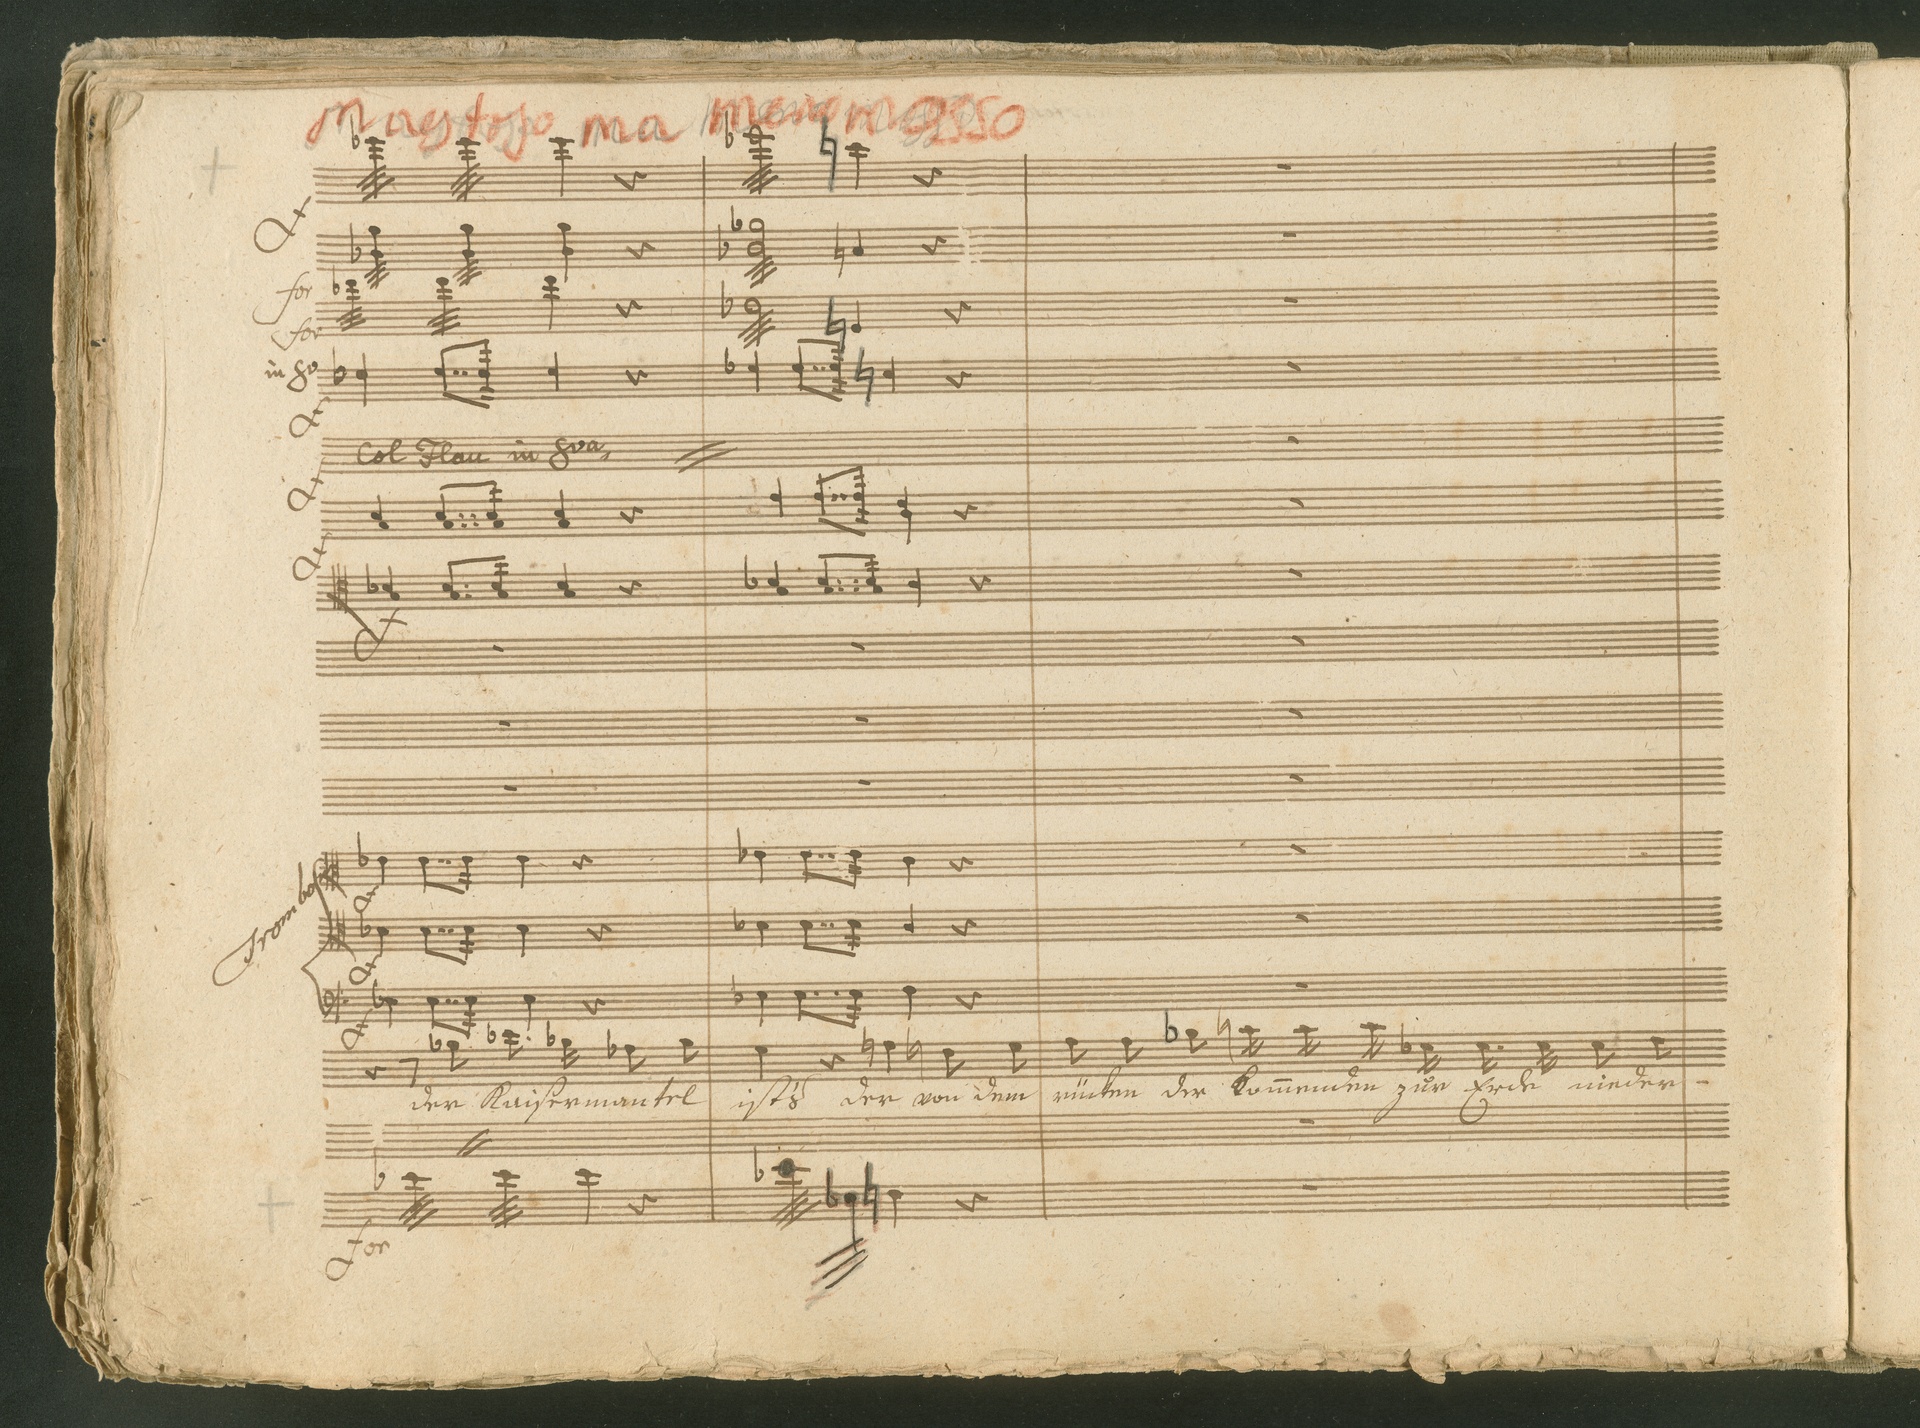 Maestoso ma meno mosso
for
for
in 8va
Col Flau in 8va
Tromboni
der Kaisermantel ist's der von dem rücken der Kom̄enden zur Erde nieder-
for